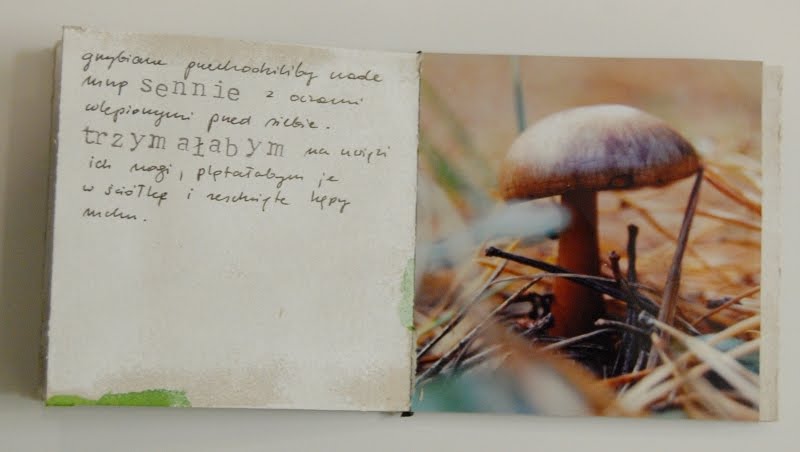 grzybiarze przechodziliby nade
mną sennie z oczami
wlepionymi przed siebie.
trzymałabym na uwięzi
ich nogi, plątałabym je
w ściółkę i zeschnięte kępy
mchu.